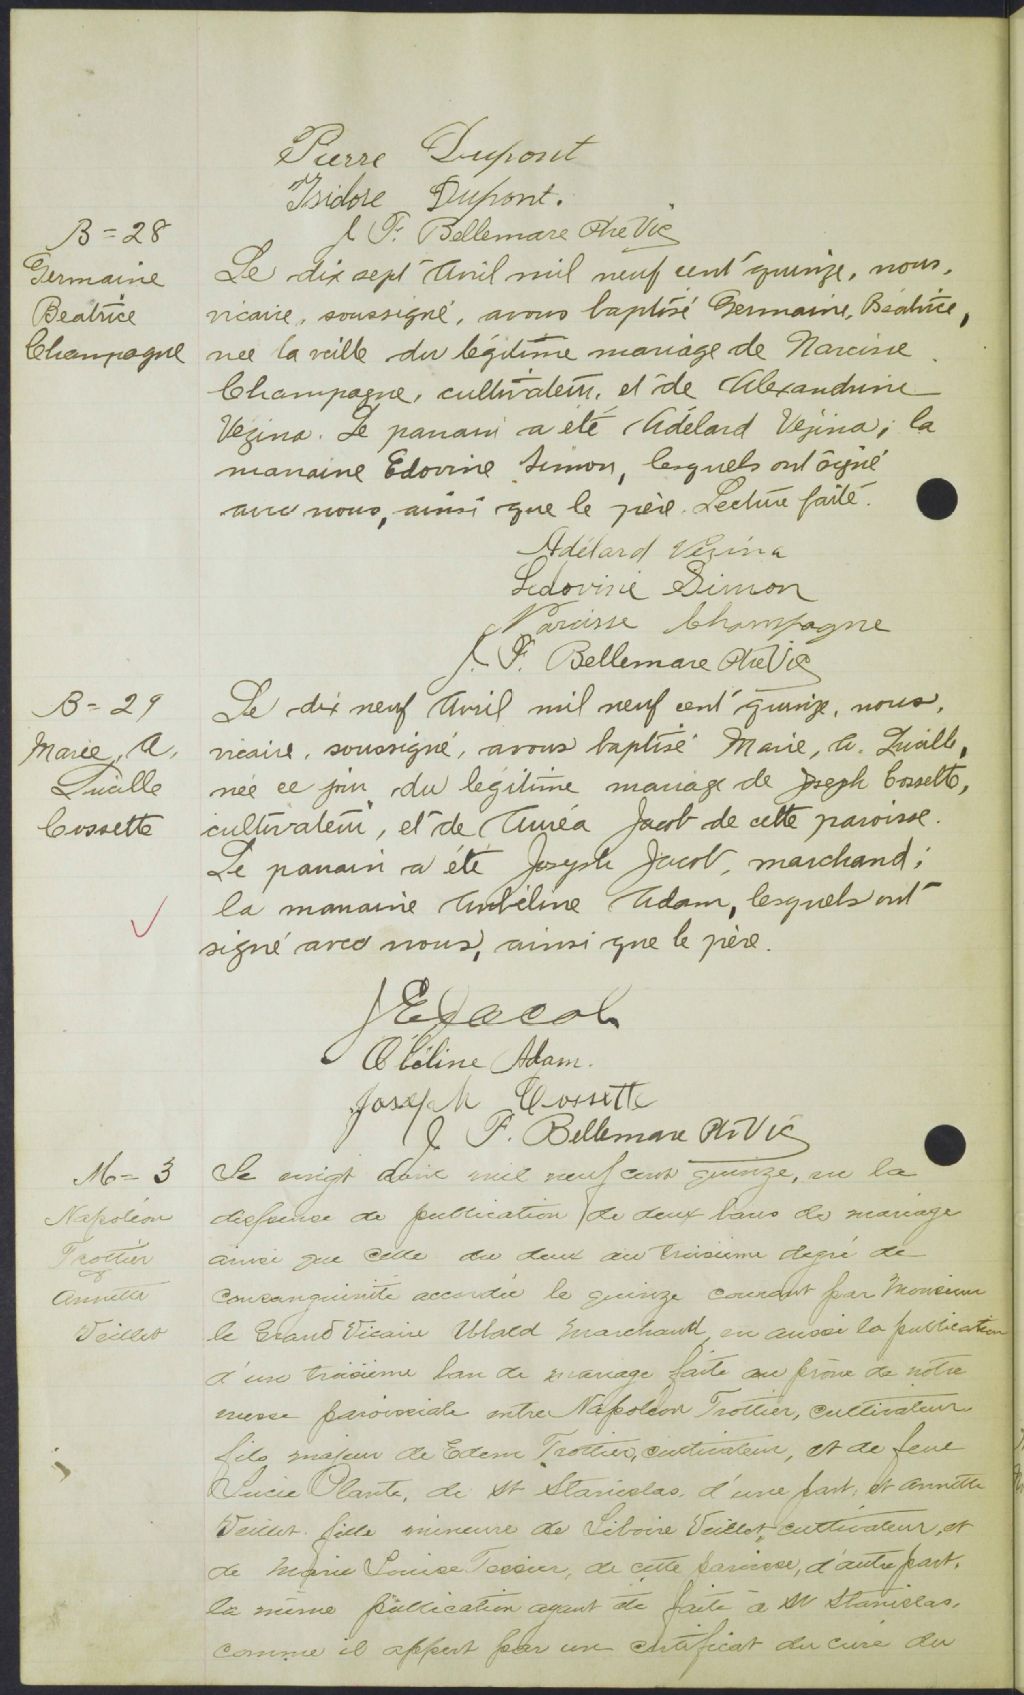 Pierre Dupont
Isidore Dupont.
J. F. Bellemare Ptre Vic
B = 28
Germaine
Beatrice
Champagne
Le dix sept Avril mil neuf cent quinze, nous,
vicaire, soussigné, avons baptisé Germaine, Béatrice,
née la veille du légitime mariage de Narcisse
Champagne, cultivateur, et de Alexandrine
Vezina. Le parrain a été Adélard Vézina; la
marraine Edovine Simon, lesquels ont signé
avec nous, ainsi que le père. Lecture faite.
Adélard Vezina
Ledovine Simon
Narcisse Champagne
J. F. Bellemare Ptre Vic
B = 29
Marie, A,
Lucille
Cossette
Le dix neuf Avril mil neuf cent quinze, nous,
vicaire, soussigné, avons baptisé Marie, A. Lucille,
née ce jour du légitime mariage de Joseph Cossette,
cultivateur, et de Auréa Jacob de cette paroisse.
Le parrain a été Joseph Jacob, marchand;
la marraine Adam, lesquels ont
signé avec nous, ainsi que le père.
J E Jacob
Adam.
Joseph Cossette
J. F. Bellemare Ptre Vic
M = 3
Napoléon
Trottier
&
Annette
Veillet
Le vingt avril mil neuf cent quinze, vu la
dispense de publication de deux bans de mariage
ainsi que celle du deux au troisième degré de
consanguinité accordée le quinze courant par Monsieur
le Grand Vicaire Ubald Marchand, vu aussi la publication
d'un troisième ban de mariage faite au prône de notre
messe paroissiale entre Napoléon Trottier, cultivateur
fils majeur de Edem Trottier, cultivateur, et de feue
Lucie Plante, de St Stanislas, d'une part; et Annette
Veillet fille mineure de Liboire Veillet, cultivateur, et
de Marie Louise Tessier, de cette paroisse, d'autre part.
la même publication ayant été faite à St Stanislas,
comme il appert par un certificat du curé du